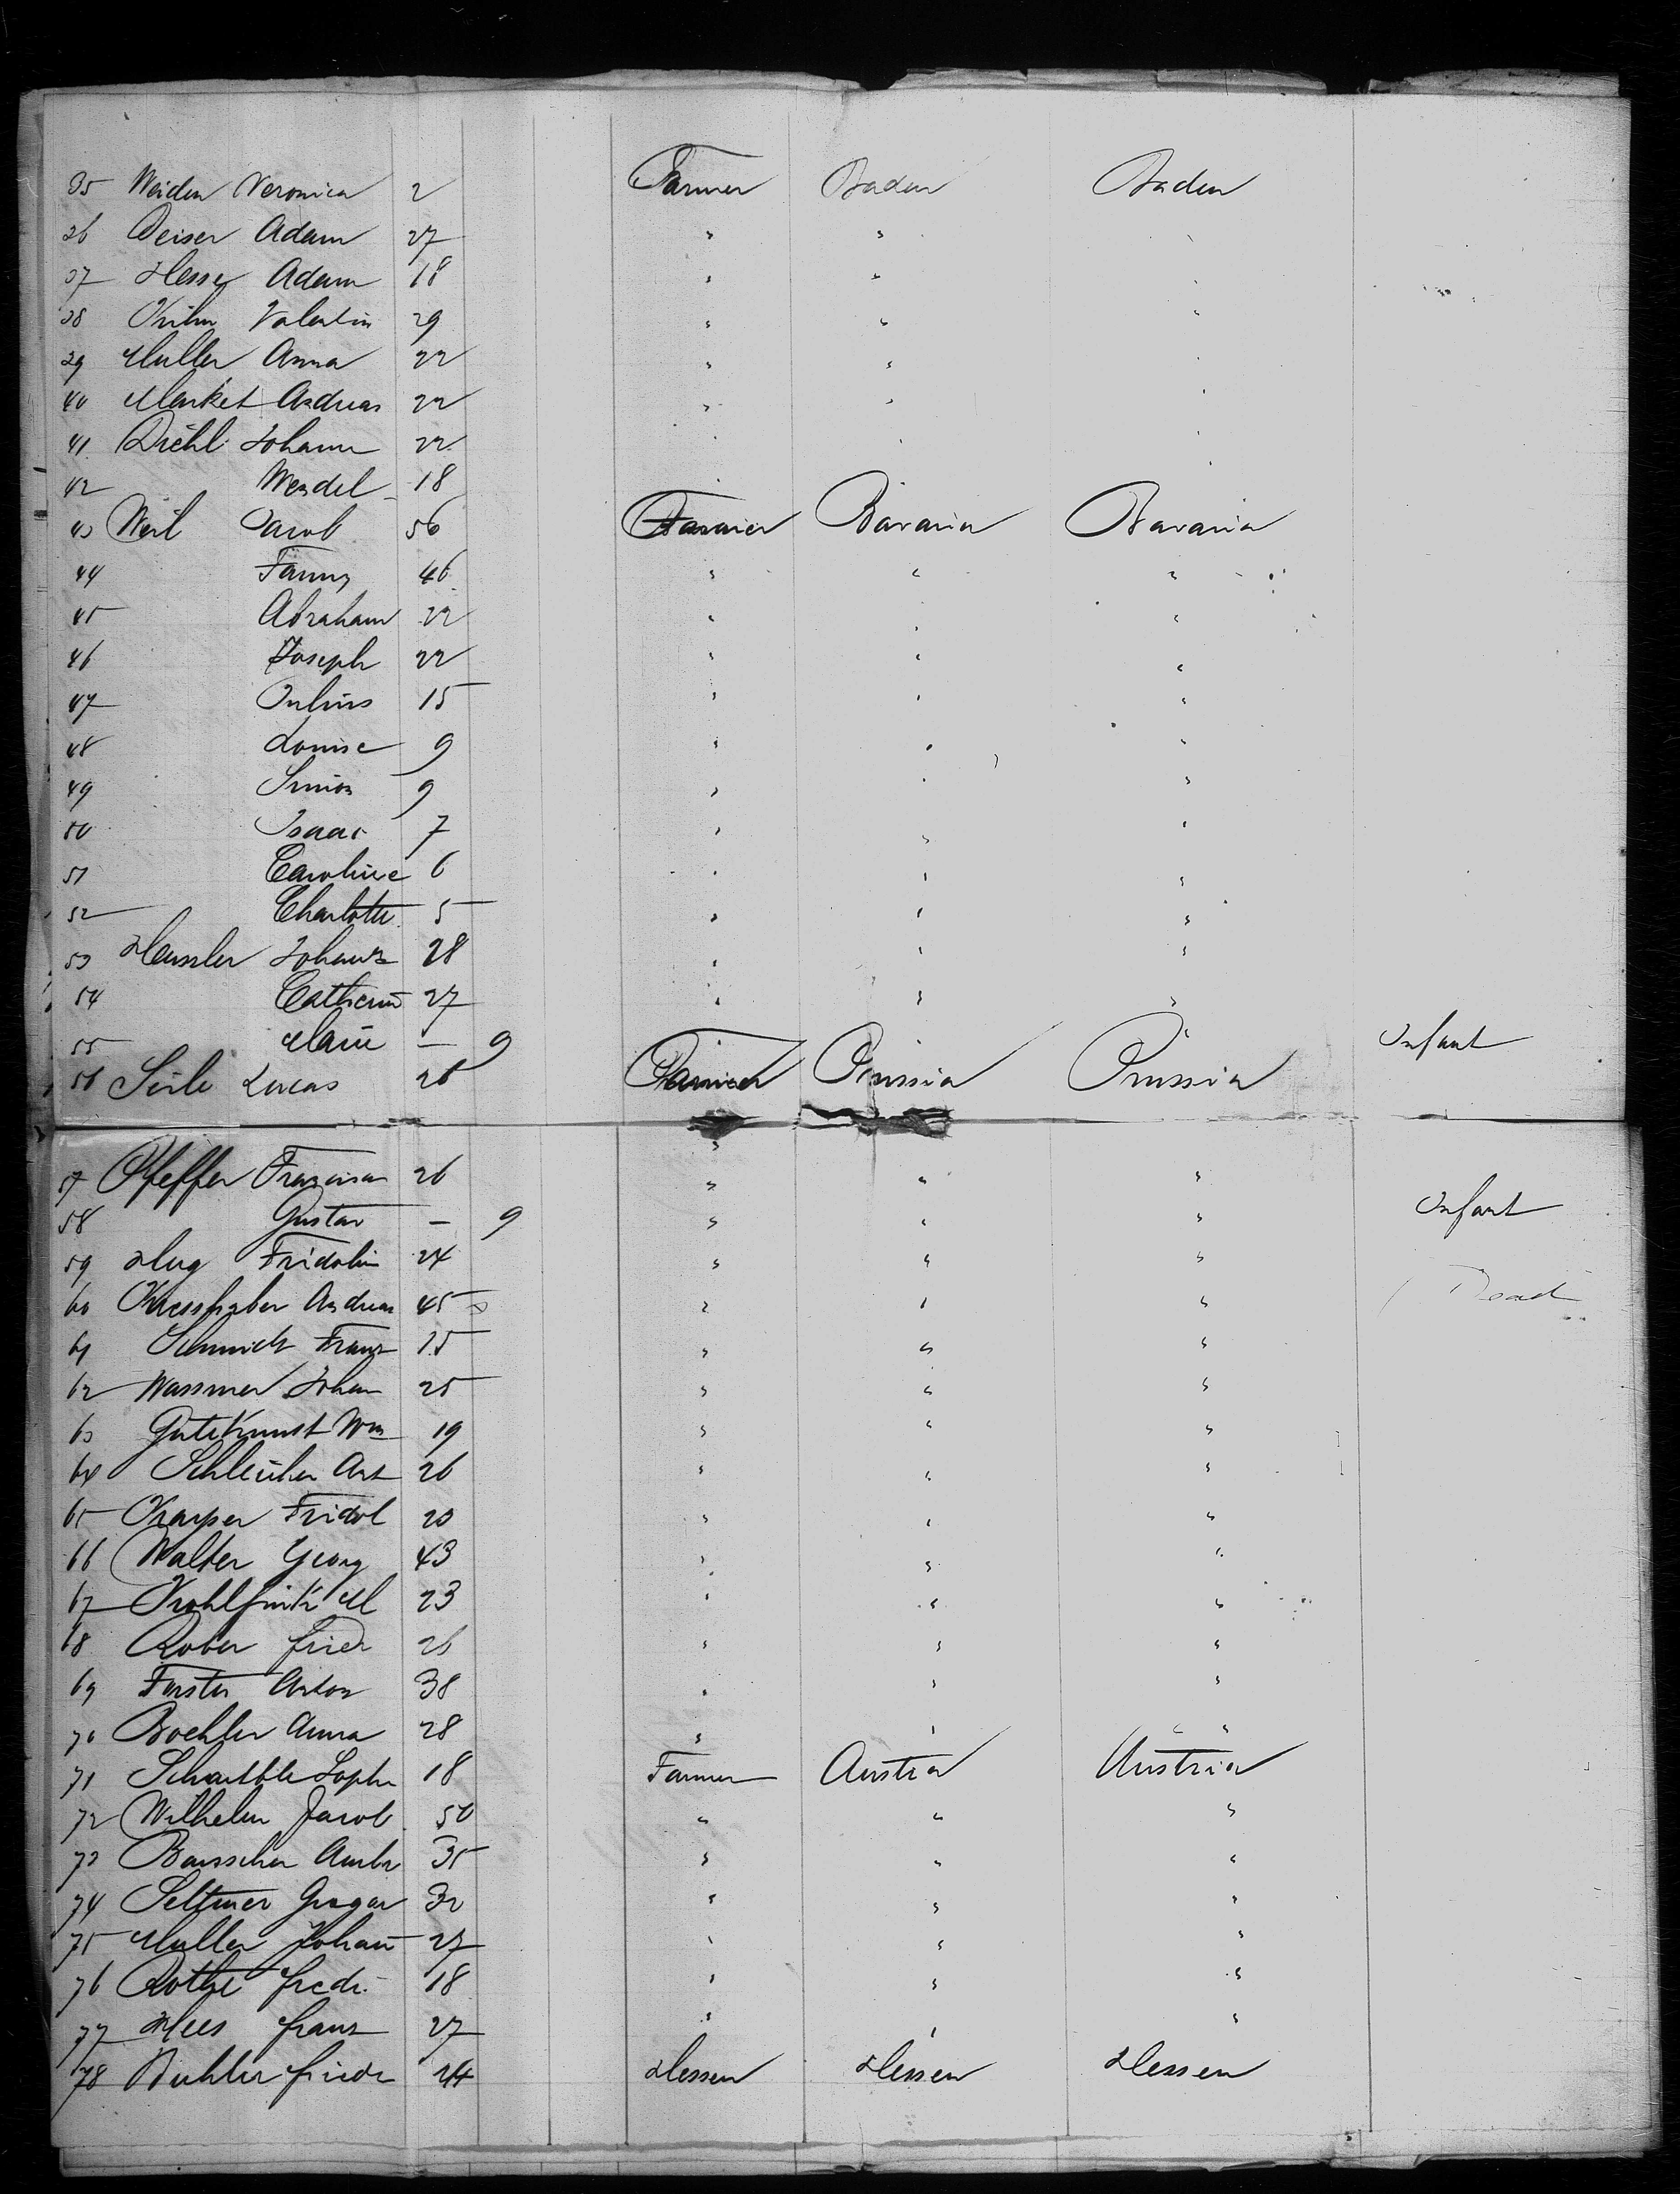 35 Weiden Veronica 2 Farmer Baden Baden
36 Deiser Adam 27 " " "
37 Hesse Adam 18 " " "
38 Valentin 29 " " "
39 Muller Anna 22 " " "
40 Merket Andreas 22 " " "
41 Diehl Johann 22 " " "
42 Wendel 18 "
43 Weil Jacob 56 Farmer Bavaria Bavaria
44 Fanny 46 " " "
45 Abraham 22 " " "
46 Joseph 22 " " "
47 Julius 15 " " "
48 Louise 9 " " "
49 Simon 9 " " "
50 Isaac 7 " " "
51 Caroline 6 " " "
52 Charlotte 5 " " "
53 Heussler Johann 28 " " "
54 Catharin 27 " " "
55 Marie — 9 Infant
56 Seile Lucas 26 Farmer Prussia Prussia
57 Pfeffer Francisca 26 " " "
58 Gustav — 9 " " " Infant
59 Hug Fridolin 24 " " "
60 Andreas 45 " " " Dead
61 Schmidt Franz 15 " " "
62 Wassmer Johan 25 " " "
63 Gutekunst Wm 19 " " "
64 Schleicher Ant 26 " " "
65 Kasper Fridol 20 " " "
66 Walter Georg 43 " " "
67 Kohlfink M 23 " " "
68 Rober fried 26 " " "
69 Furster Anton 38 " " "
70 Boehler Anna 28 " " "
71 Schaibble Sophe 18 Farmer Austria Austria
72 Wilhelm Jacob 50 " " "
73 Bausscher Ambr 35 " " "
74 Seltmer Gregor 30 " " "
75 Muller Johan 27 " " "
76 Rothe fredr. 18 " " "
77 Hees franz 27 " " "
78 Buhler friedr 24 Hessen Hessen Hessen